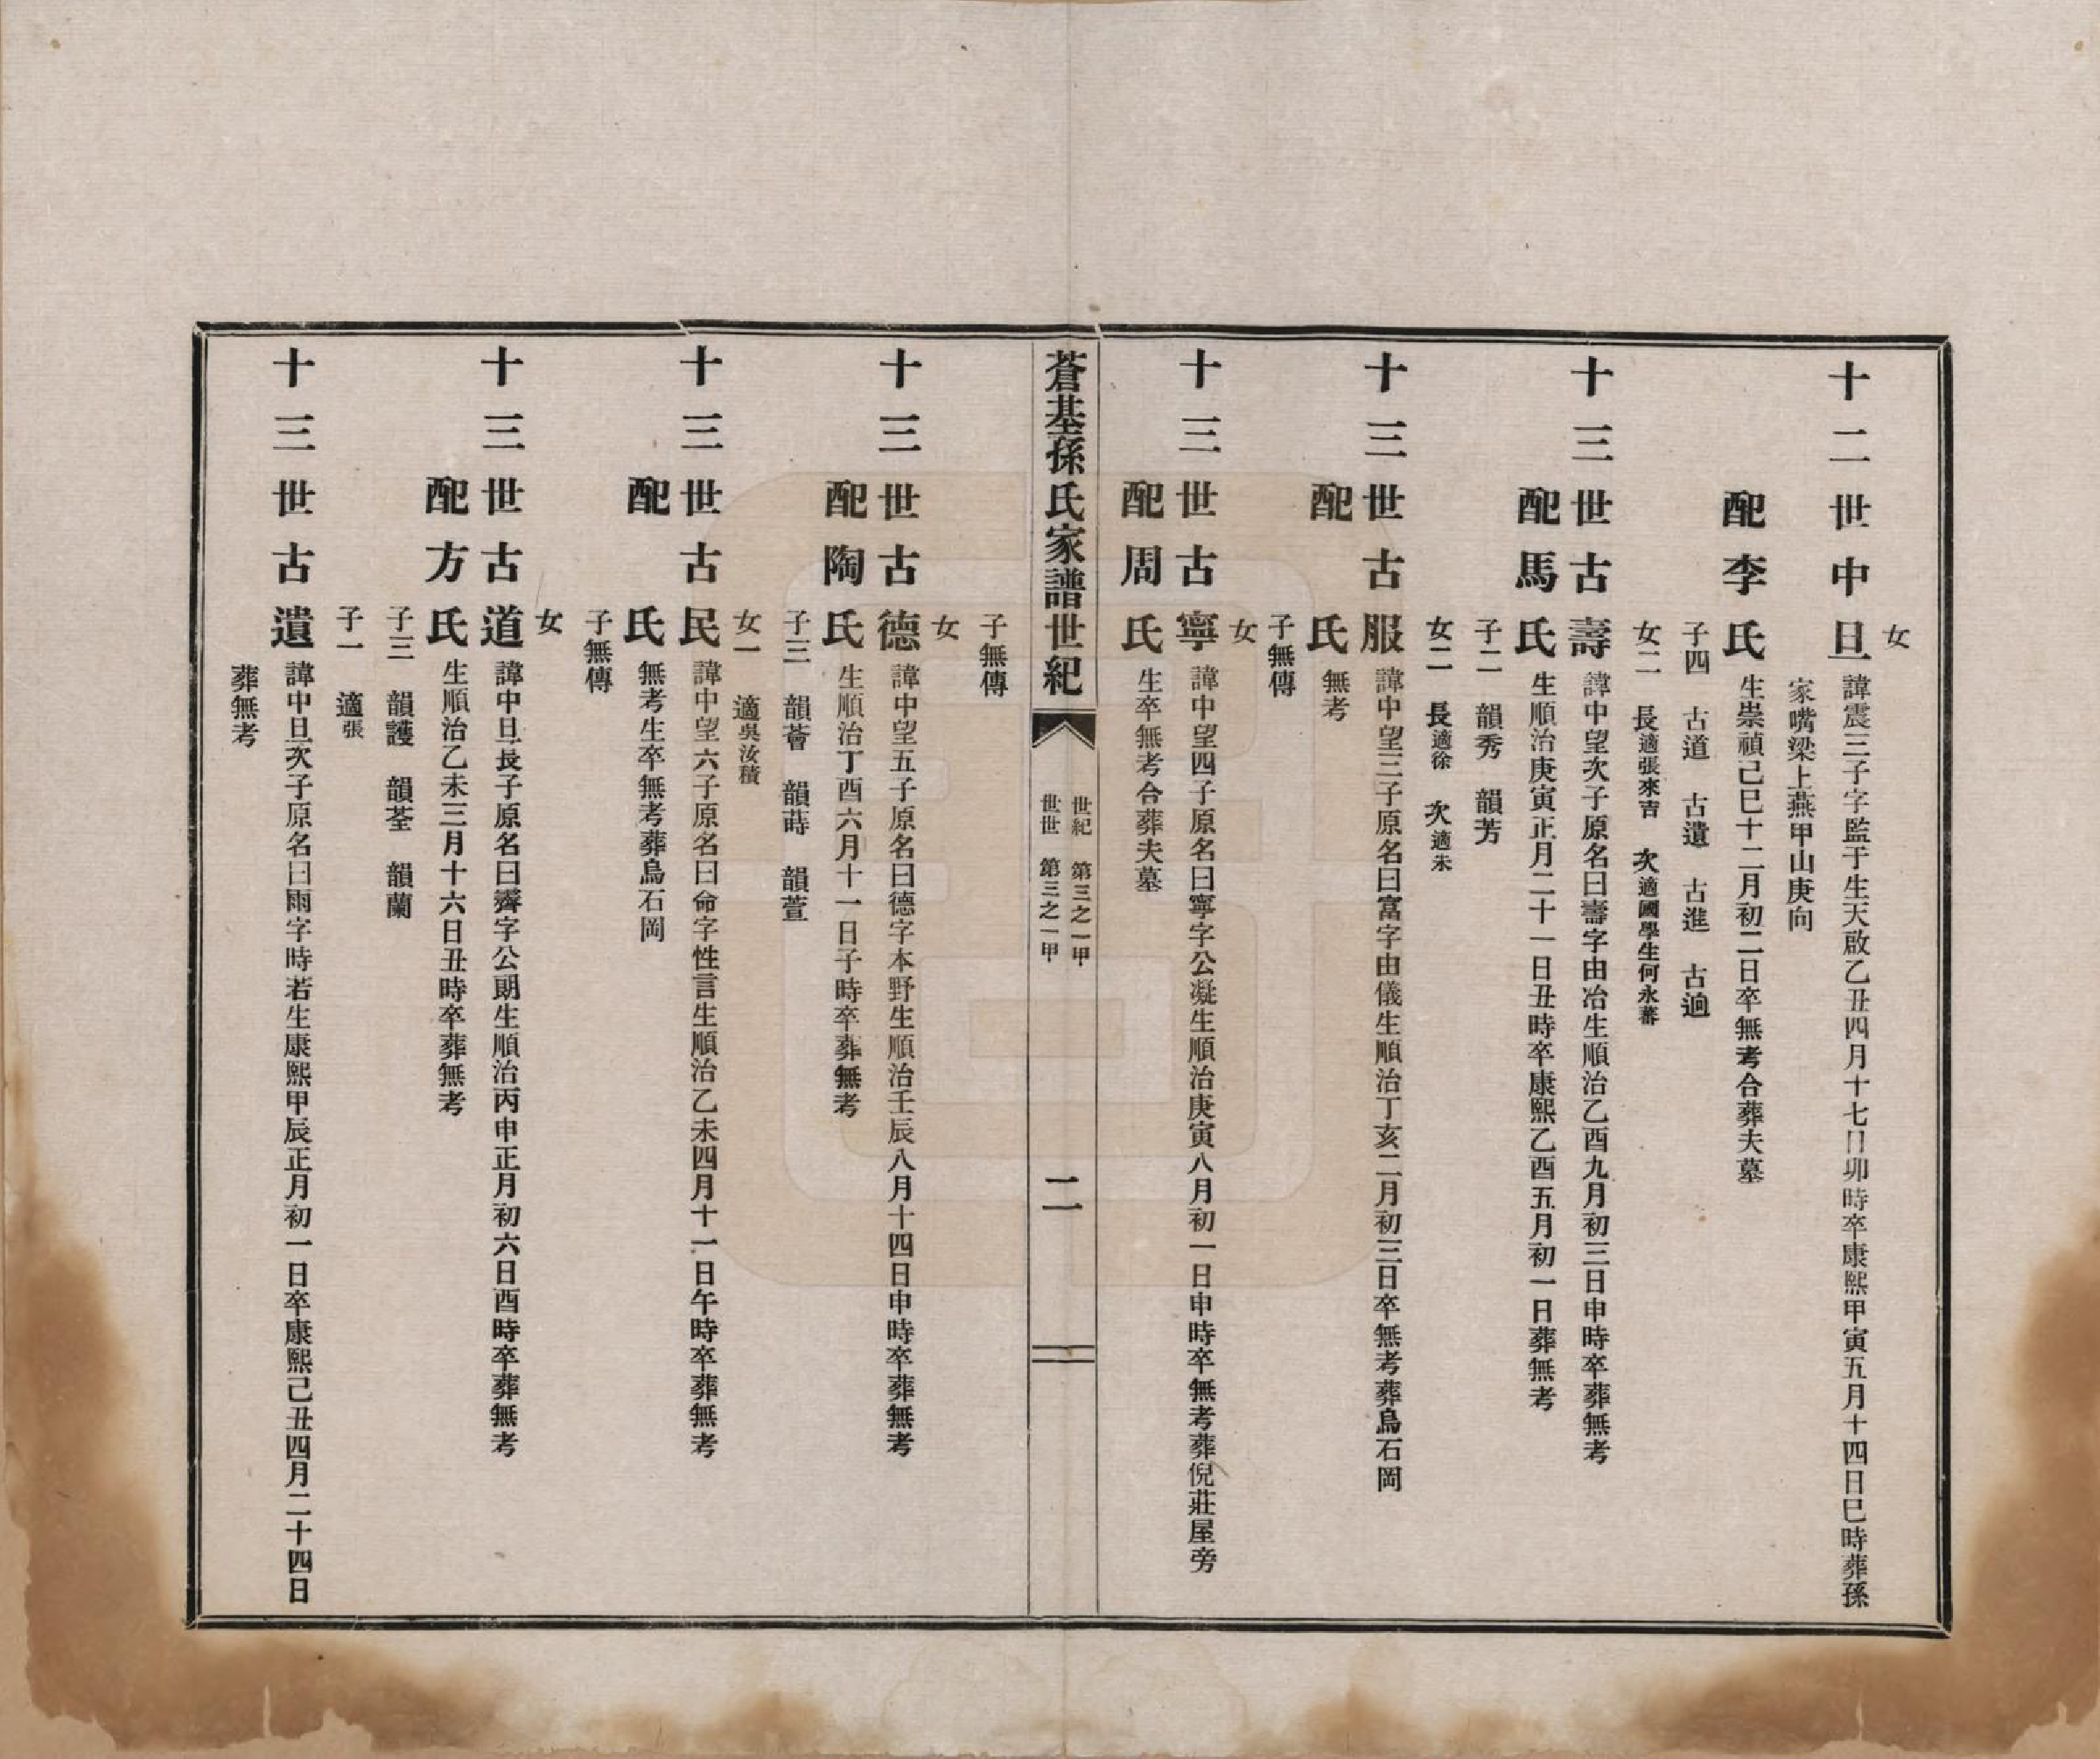 女
十二世中旦 諱震三子字監于生天啟乙丑四月十七日卯時卒康熙甲寅五月十四日巳時葬孫
家嘴梁上燕甲山庚向
配李氏 生崇禎己巳十二月初二日卒無考合葬夫墓
子四 古道 古遺 古進 古逈
女二 長適張來吉 次適國學生何永蕃
十三世古壽 諱中望次子原名曰壽字由冶生順治乙酉九月初三日申時卒葬無考
配馬氏 生順治庚寅正月二十一日丑時卒康熙乙酉五月初一日葬無考
子二 韻秀 韻芳
女二 長適徐 次適朱
十三世古服 諱中望三子原名曰富字由儀生順治丁亥二月初三日卒無考葬烏石岡
配 氏 無考
子無傳
女
十三世古寧 諱中望四子原名曰寧字公凝生順治庚寅八月初一日申時卒無考葬倪莊屋旁
配周氏 生卒無考合葬夫墓
蒼基孫氏家譜世紀
世紀 第三之一甲
世世 第三之一甲
二
子無傳
女
十三世古德 諱中望五子原名曰德字本野生順治壬辰八月十四日申時卒葬無考
配陶氏 生順治丁酉六月十一日子時卒葬無考
子三 韻薈 韻蒔 韻萱
女一 適吳汝積
十三世古民 諱中望六子原名曰命字性言生順治乙未四月十一日午時卒葬無考
配 氏 無考生卒無考葬烏石岡
子無傳
女
十三世古道 諱中旦長子原名曰霽字公朗生順治丙申正月初六日酉時卒葬無考
配方氏 生順治乙未三月十六日丑時卒葬無考
子三 韻護 韻荃 韻蘭
子一 適張
十三世古遺 諱中旦次子原名曰雨字時若生康熙甲辰正月初一日卒康熙己丑四月二十四日
葬無考